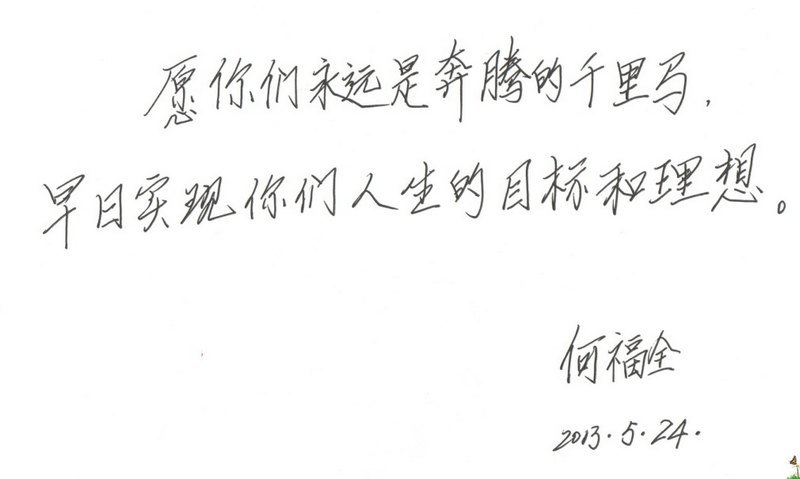 愿你们永远是奔腾的千里马，
早日实现你们人生的目标和理想。
何福全
2013.5.24.